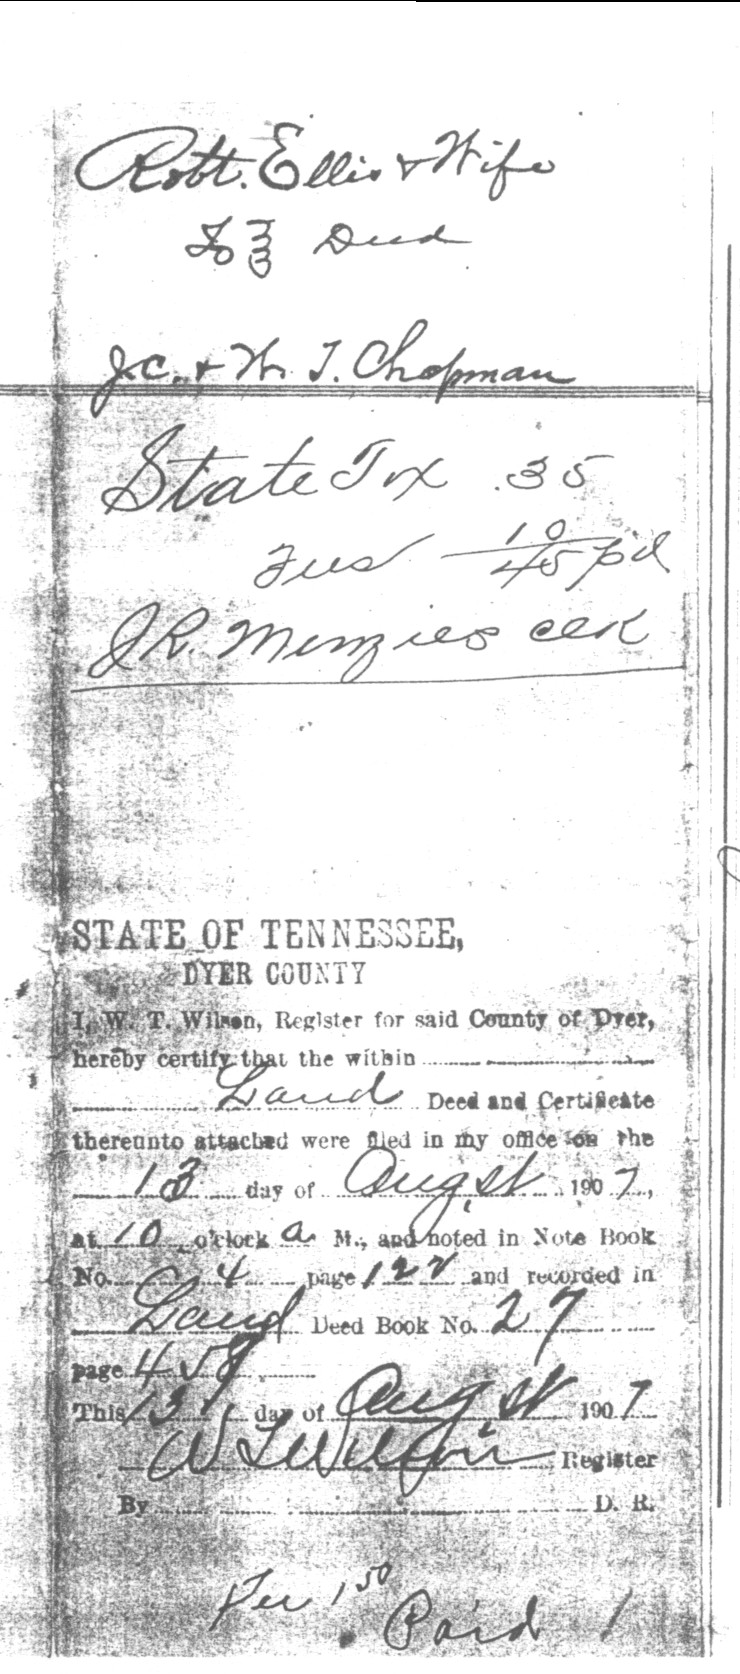 Robt. Ellis & Wife
To Deed
J.C. & W. T. Chapman
State Tax .35
Fees 10
45 pd
J.R. Menzies Clk
STATE OF TENNESSEE,
DYER COUNTY
I, W. T. Wilson, Register for said County of Dyer,
hereby certify that the within
Land Deed and Certificate
thereunto attached were filed in my office on the
13 day of Augst 1907,
at 10 o'clock a M., and noted in Note Book
No. 4 page 122 and recorded in
Land Deed Book No. 27
page 458
This 13 day of Augst 1907
W T Wilson Register
By D. R.
Fee 1 50
Paid